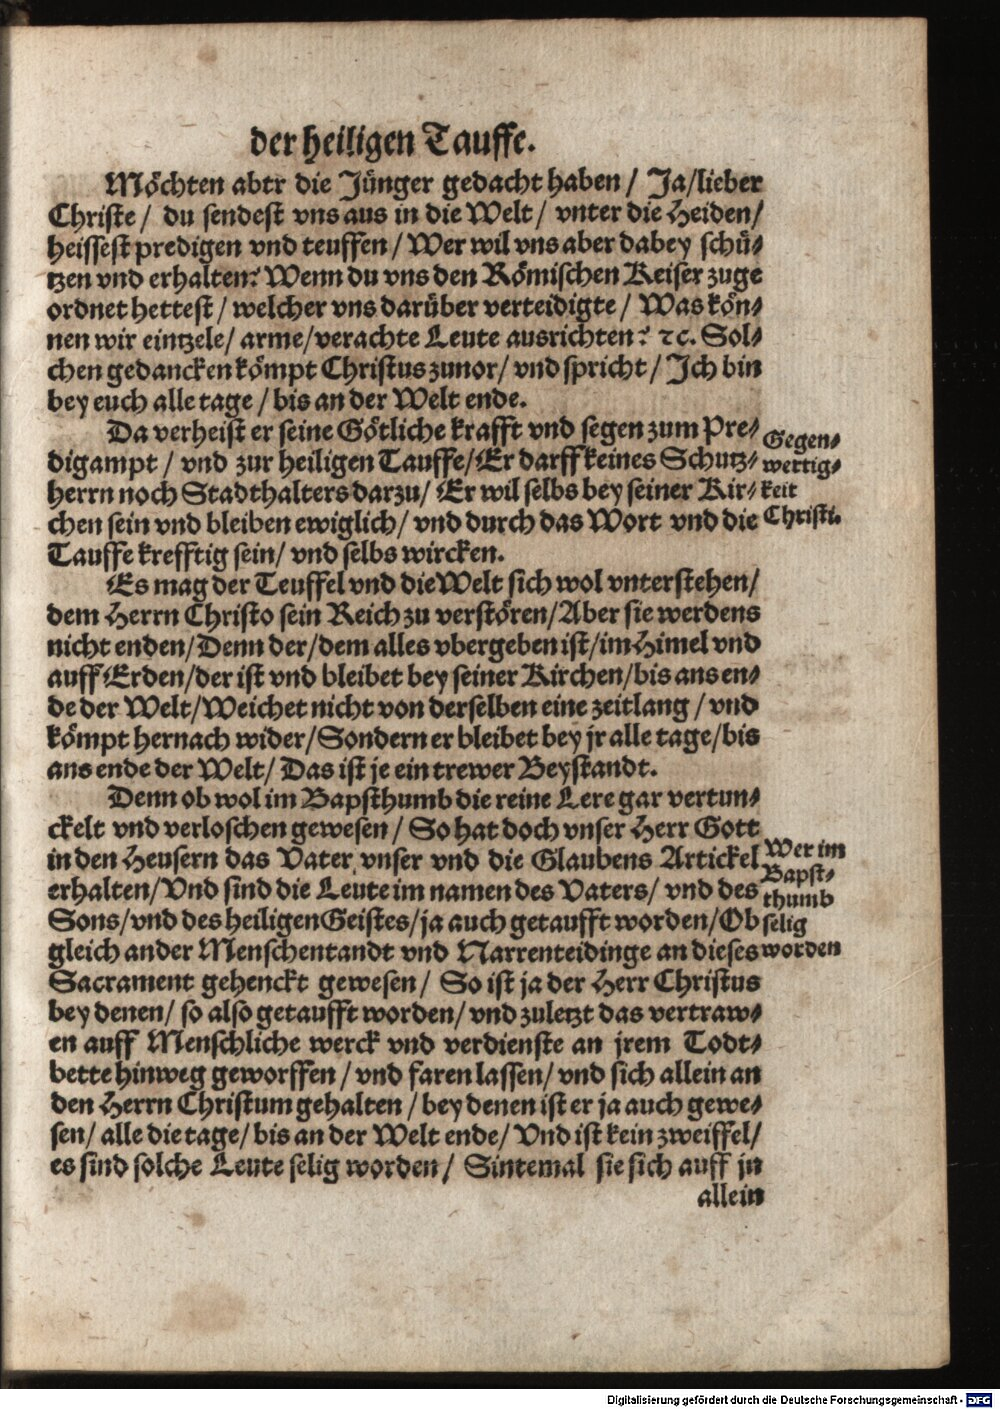 der heiligen Tauffe.
Möchten abtr die Jünger gedacht haben / Ja/lieber
Christe / du sendest vns aus in die Welt / vnter die Heiden/
heissest predigen vnd teuffen / Wer wil vns aber dabey schü-
tzen vnd erhalten? Wenn du vns den Römischen Keiser zuge
ordnet hettest / welcher vns darüber verteidigte / Was kön-
nen wir eintzele / arme / verachte Leute ausrichten? ꝛc. Sol-
chen gedancken kömpt Christus zunor / vnd spricht / Ich bin
bey euch alle tage / bis an der Welt ende.
Da verheist er seine Götliche krafft vnd segen zum Pre-
digampt / vnd zur heiligen Tauffe / Er darff keines Schutz-
herrn noch Stadthalters darzu / Er wil selbs bey seiner Kir-
chen sein vnd bleiben ewiglich / vnd durch das Wort vnd die
Tauffe krefftig sein / vnd selbs wircken.
Gegen-
wertig-
keit
Christi.
Es mag der Teuffel vnd die Welt sich wol vnterstehen /
dem Herrn Christo sein Reich zu verstören / Aber sie werdens
nicht enden / Denn der / dem alles vbergeben ist / im Himel vnd
auff Erden / der ist vnd bleibet bey seiner Kirchen / bis ans en-
de der Welt / Weichet nicht von derselben eine zeitlang / vnd
kömpt hernach wider / Sondern er bleibet bey jr alle tage / bis
ans ende der Welt / Das ist je ein trewer Beystandt.
Denn ob wol im Bapsthumb die reine Lere gar vertun-
ckelt vnd verloschen gewesen / So hat doch vnser Herr Gott
in den Heusern das Vater vnser vnd die Glaubens Artickel
erhalten / Vnd sind die Leute im namen des Vaters / vnd des
Sons / vnd des heiligen Geistes / ja auch getaufft worden / Ob
gleich ander Menschentandt vnd Narrenteidinge an dieses
Sacrament gehenckt gewesen / So ist ja der Herr Christus
bey denen / so also getaufft worden / vnd zuletzt das vertraw-
en auff Menschliche werck vnd verdienste an jrem Todt-
bette hinweg geworffen / vnd faren lassen / vnd sich allein an
den Herrn Christum gehalten / bey denen ist er ja auch gewe-
sen / alle die tage / bis an der Welt ende / Vnd ist kein zweiffel /
es sind solche Leute selig worden / Sintemal sie sich auff jn
allein
Wer im
Bapst-
thumb
selig
worden
Digitalisierung gefördert durch die Deutsche Forschungsgemeinschaft - DFG